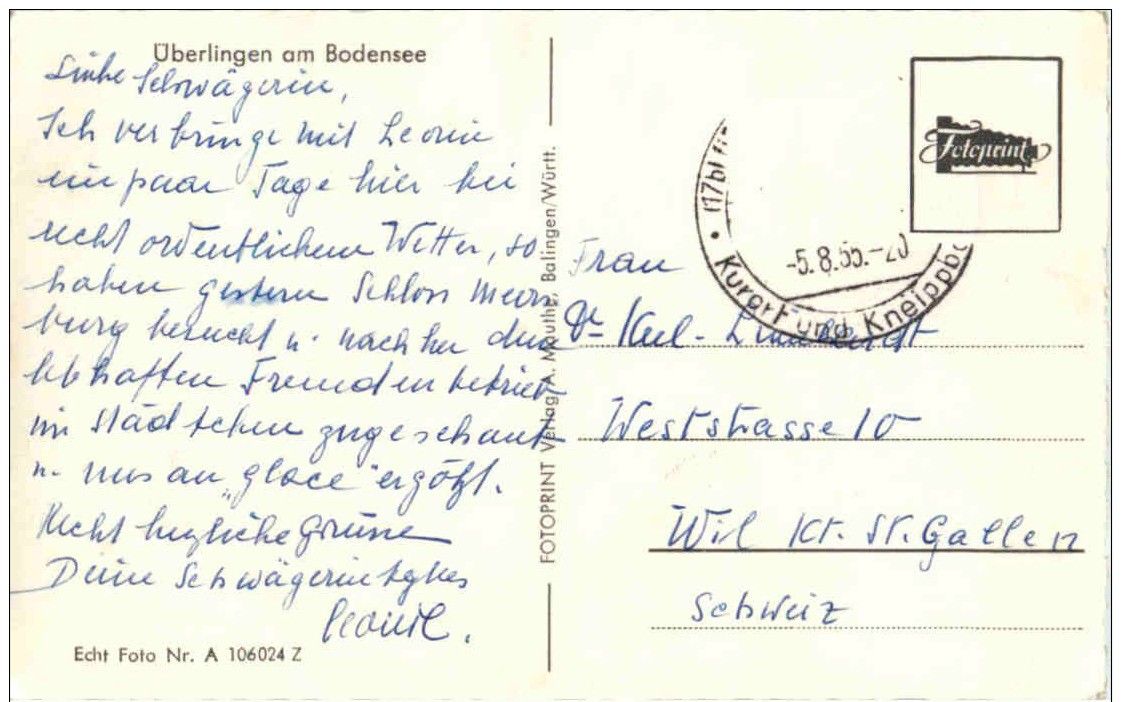 Überlingen am Bodensee
Liebe Schwägerin,
Ich verbringe mit Leonie
ein paar Tage hier bei
recht ordentlichem Wetter, so
haben gestern Schloss Meers
burg besucht u. nachher dem
lebhaften Fremdenbetrieb
im Städtchen zugeschaut
u. uns an „glace" ergötzt.
Recht herzliche Grüsse
Deine Schwägerin Agnes
Leonie.
Echt Foto Nr. A 106024 Z
FOTOPRINT Verlag A. Mauthe, Balingen/Württ.
Fotoprint
(17b)
-5.8.55.-20
Kurort und Kneippb
Frau
Dr Keel-
Weststrasse 10
Wil Kt. St. Gallen
Schweiz